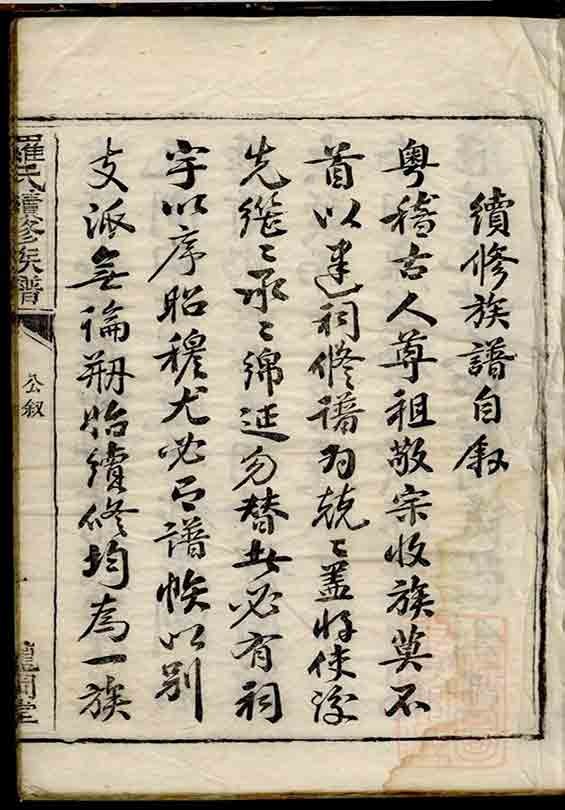 續修族譜自叙
粵稽古人尊祖敬宗收族莫不
首以建祠修譜為兢〻蓋將使後
先繼〻承〻綿延勿替此必有祠
宇以序昭穆尤必有譜帙以別
支派無論刱始續修均為一族
羅氏續修族譜
公叙